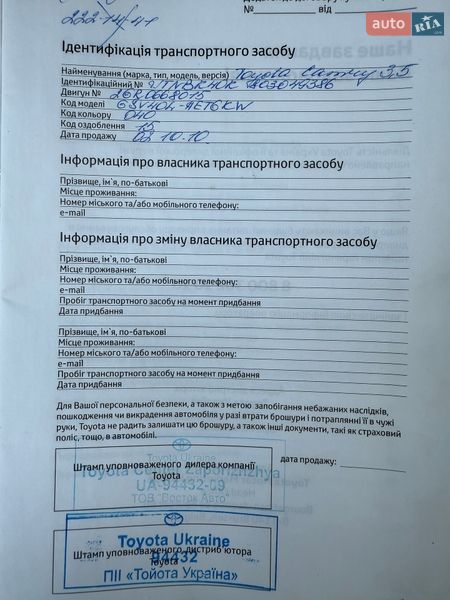 № від
222-14/41
auto RIA.com
Ідентифікація транспортного засобу
Найменування (марка, тип, модель, версія) Toyota Camry 3,5
Ідентифікаційний №
Двигун №
Код моделі GSV40L-AETGKW
Код кольору 040
Код оздоблення 15
Дата продажу 02.10.10.
Інформація про власника транспортного засобу
Прізвище, ім`я, по-батькові
Місце проживання:
Номер міського та/або мобільного телефону:
e-mail
Інформація про зміну власника транспортного засобу
Прізвище, ім`я, по-батькові
Місце проживання:
Номер міського та/або мобільного телефону:
e-mail
Пробіг транспортного засобу на момент придбання
Дата придбання
Прізвище, ім`я, по-батькові
Місце проживання:
Номер міського та/або мобільного телефону:
e-mail
Пробіг транспортного засобу на момент придбання
Дата придбання
Для Вашої персональної безпеки, а також з метою запобігання небажаних наслідків,
пошкодження чи викрадення автомобіля у разі втрати брошури і потраплянні її в чужі
руки, Toyota не радить залишати цю брошуру, а також інші документи, такі як страховий
поліс, тощо, в автомобілі.
Toyota Ukraine
Штамп уповноваженого дилера компанії
Toyota
дата продажу:
Toyota Center Zaporizhzhya
UA-94432-09
ТОВ "Восток Авто"
Toyota Ukraine
94432
Штамп уповноваженого дистриб`ютора
Toyota
ПІІ «Тойота Україна»